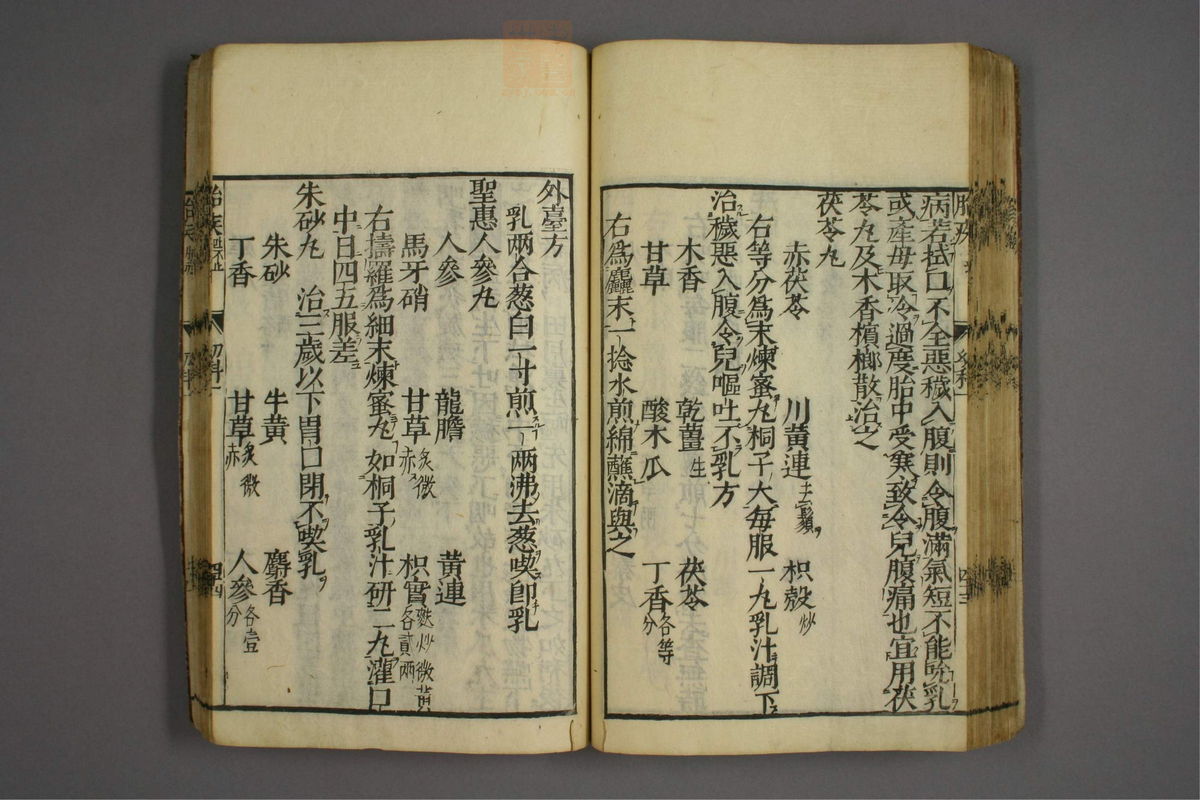 病若拭口不全惡穢入腹則令腹滿氣短不能吮乳
或産母取冷過度胎中受寒致令兒腹痛也宜用茯
苓丸及木香檳榔散治之
茯苓丸
赤茯苓 川黃連去鬚 枳殼炒
右等分爲末煉蜜丸桐子大每服一丸乳汁調下
治穢惡入腹令兒嘔吐不乳方
木香 乾薑生 茯苓
甘草 酸木瓜 丁香各等分
右爲麤末一捻水煎綿蘸滴與之
外臺方
乳兩合葱白一寸煎一兩沸去葱喫卽乳
聖惠人參丸
人參 龍膽 黃連
馬牙硝 甘草炙微赤 枳實麩炒微黃各貳兩
右擣羅爲細末煉蜜丸如桐子乳汁研二丸灌口
中日四五服差
朱砂丸 治三歲以下胃口閉不喫乳
朱砂 牛黃 麝香
丁香 甘草炙微赤 人參各壹分